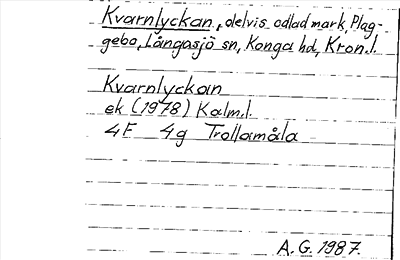 Kvarnlyckan, delvis odlad mark, Plag-
gebo, Långasjö sn, Konga hd, Kron.l.
Kvarnlyckan
ek (1978) Kalm.l.
4F 4g Trollamåla
A.G. 1987.